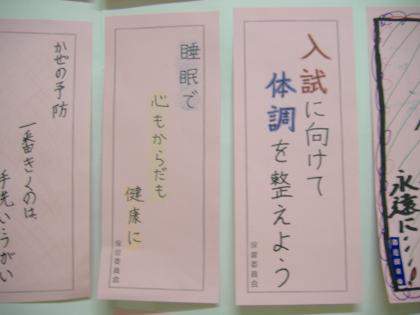 入試に向けて
体調を整えよう
保健委員会
睡眠で
心もからだも
健康に
保健委員会
かぜの予防
一番きくのは
手洗いうがい
永遠に